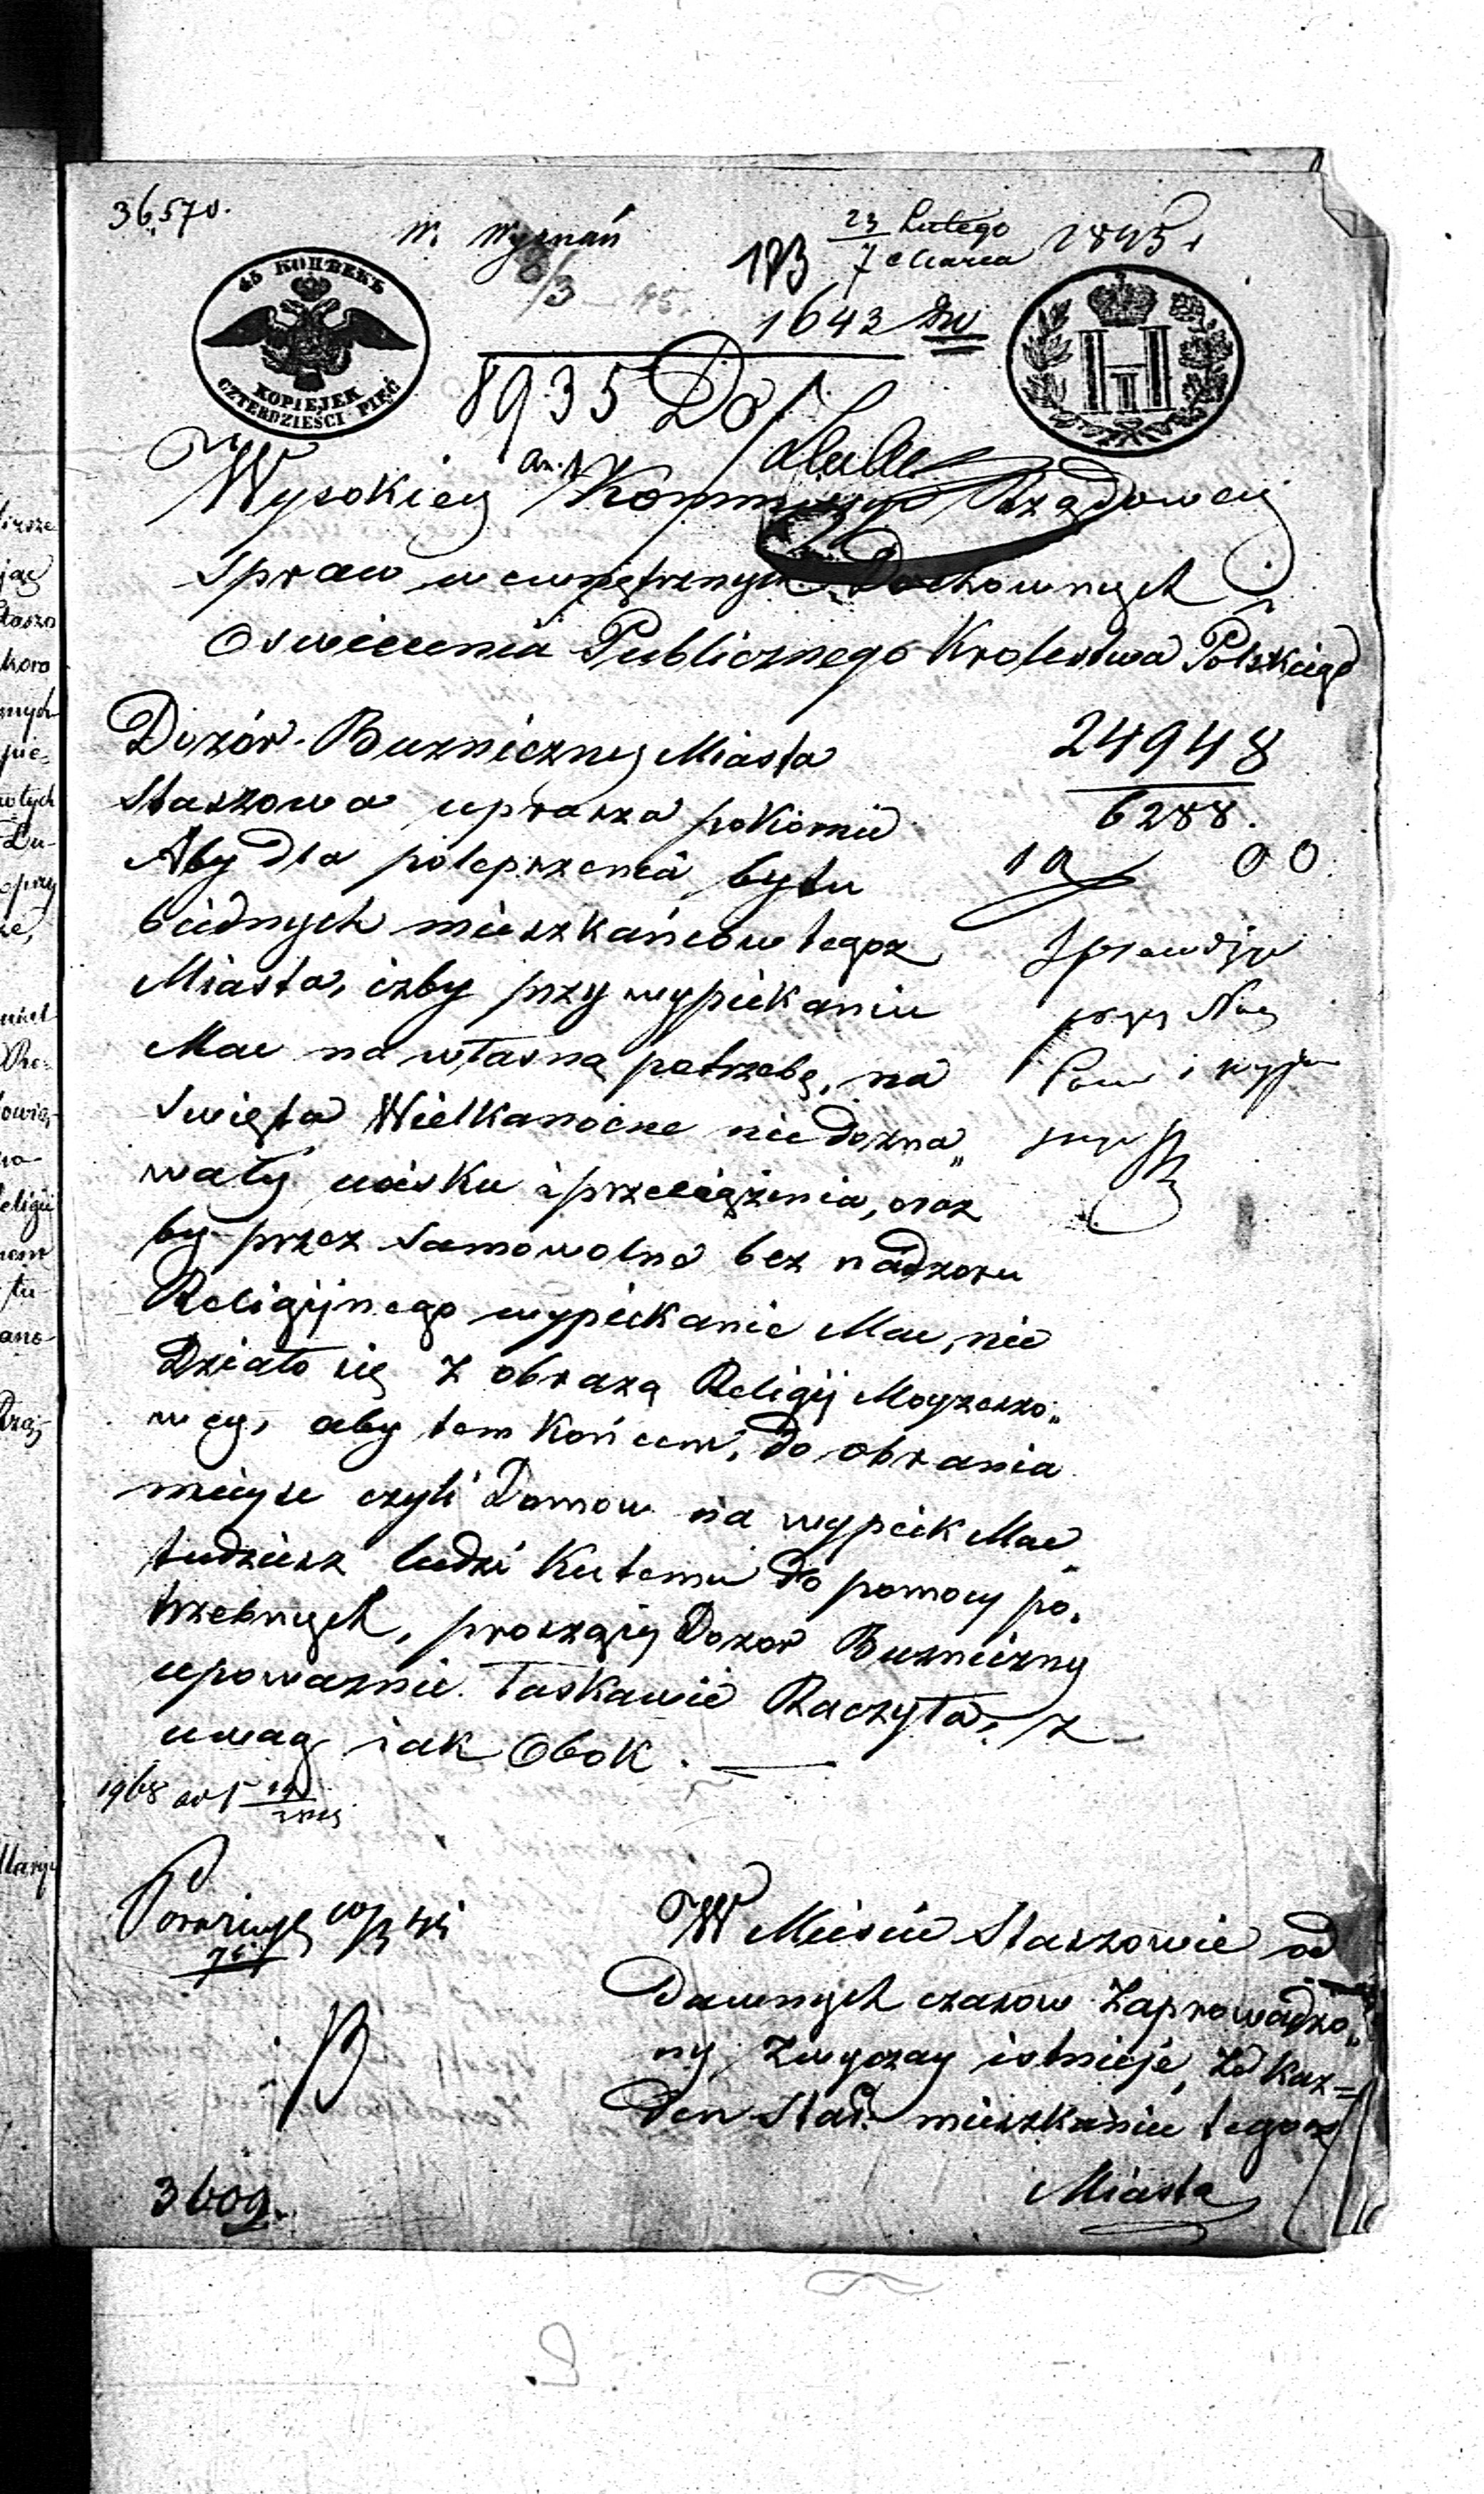 36,570.
W. Wyznań
8/3 45.
183 23 Lutego 1845 r
7 Marca
1643
45 КОПѢЕКЪ
KOPIEJEK
CZTERDZIEŚCI PIĘĆ
8935 Do
Wysokiey Kommissyi Rządowey
Spraw wewnętrznych Duchownych i
Oswiecenia Publicznego Krolestwa Polskiego
Dozór Buzniczney Miasta
Staszowa uprasza pokornie
Aby dla polepszenia bytu
biednych mieszkańców tegoz
Miasta, izby przy wypiekaniu
Mac na własną potrzebę, na
Swięta Wielkanocne niedozna„
wały ucisku i przeciążenia, oraz
by przez samowolne bez nadzoru
Religijnego wypiekanie Mac, nie
Działo się z obrazą Religij Moyzeszo„
wey, aby tem końcem, do obrania
mieysc czyli Domow na wypiek Mac
tudziesz ludzi ku temu do pomocy po„
trzebnych, proszący Dozor Buzniczny
upowaznic łaskawie Raczyła, z
uwag iak Obok. —
24948
6288.
00
1968
W Miescie Staszowie od
Dawnych czasow Zaprowadzo„
ny Zwyczay istnieje, ze kaz=
Den Stał. mieszkaniec tegoz
Miasta
3609.